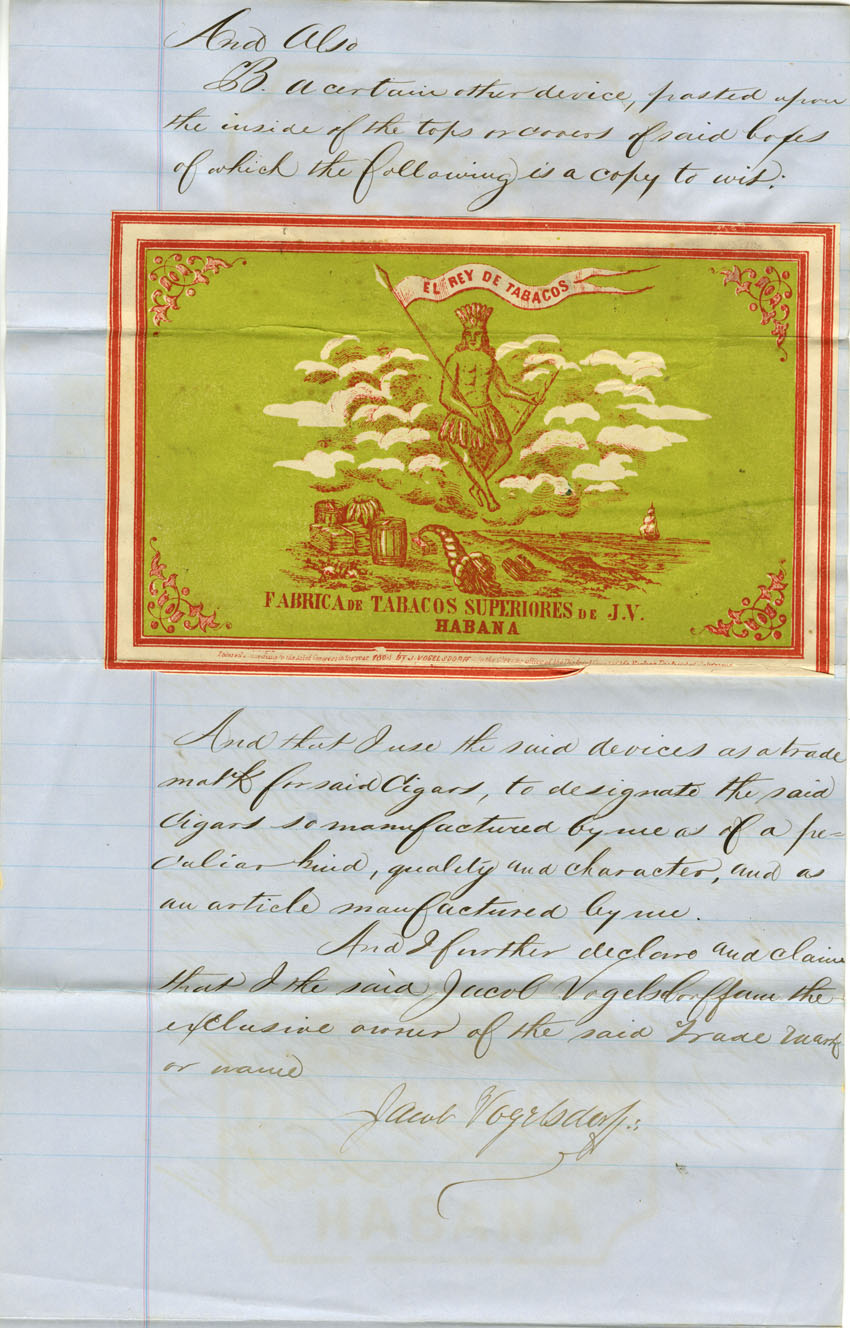 And Also
B. a certain other device, pasted upon
the inside of the tops or covers of said boxes
of which the following is a copy to wit:
EL REY DE TABACOS
FABRICA DE TABACOS SUPERIORES DE J.V.
HABANA
by J. VOGELSDORFF
And that I use the said devices as a trade
mark for said Cigars, to designate the said
Cigars so manufactured by me as of a pe-
culiar kind, quality and character, and as
an article manufactured by me.
And I further declare and claim
that I the said Jacob Vogelsdorff am the
exclusive owner of the said Trade mark
or name
Jacob Vogelsdorff
HABANA